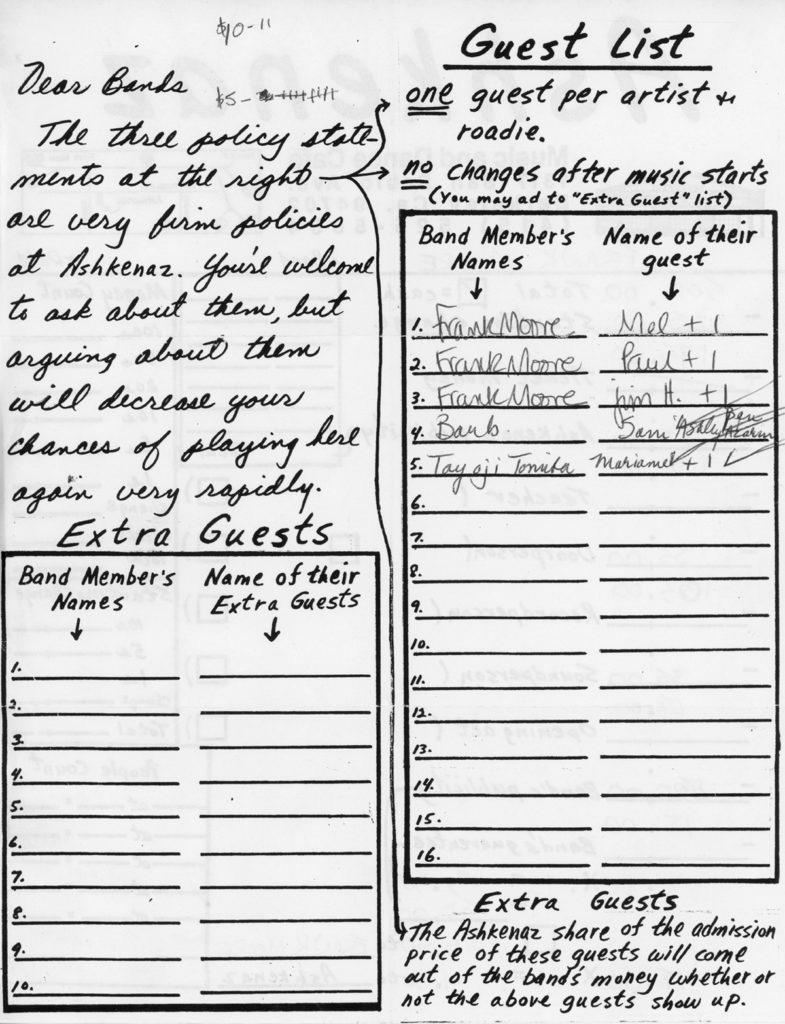 $10-11
$5-
Dear Bands
The three policy state-
ments at the right
are very firm policies
at Ashkenaz. You're welcome
to ask about them, but
arguing about them
will decrease your
chances of playing here
again very rapidly.
Extra Guests
Band Member's Names
Name of their Extra Guests
1.
2.
3.
4.
5.
6.
7.
8.
9.
10.
Guest List
one guest per artist +
roadie.
no changes after music starts
(You may ad to "Extra Guest" list)
Band Member's Names
Name of their guest
1. Frank Moore Mel + 1
2. Frank Moore Paul + 1
3. Frank Moore Jim H. + 1
4. Barb Sam
5. Tayoji Tomita + 1
6.
7.
8.
9.
10.
11.
12.
13.
14.
15.
16.
Extra Guests
The Ashkenaz share of the admission
price of these guests will come
out of the band's money whether or
not the above guests show up.